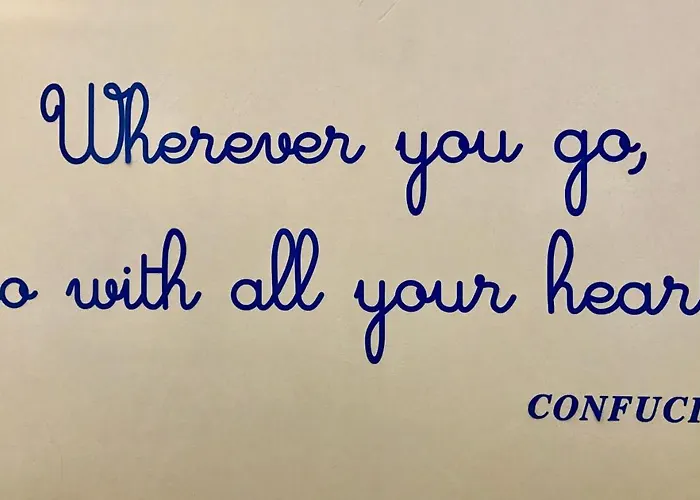 Wherever you go,
o with all your hear
CONFUCI